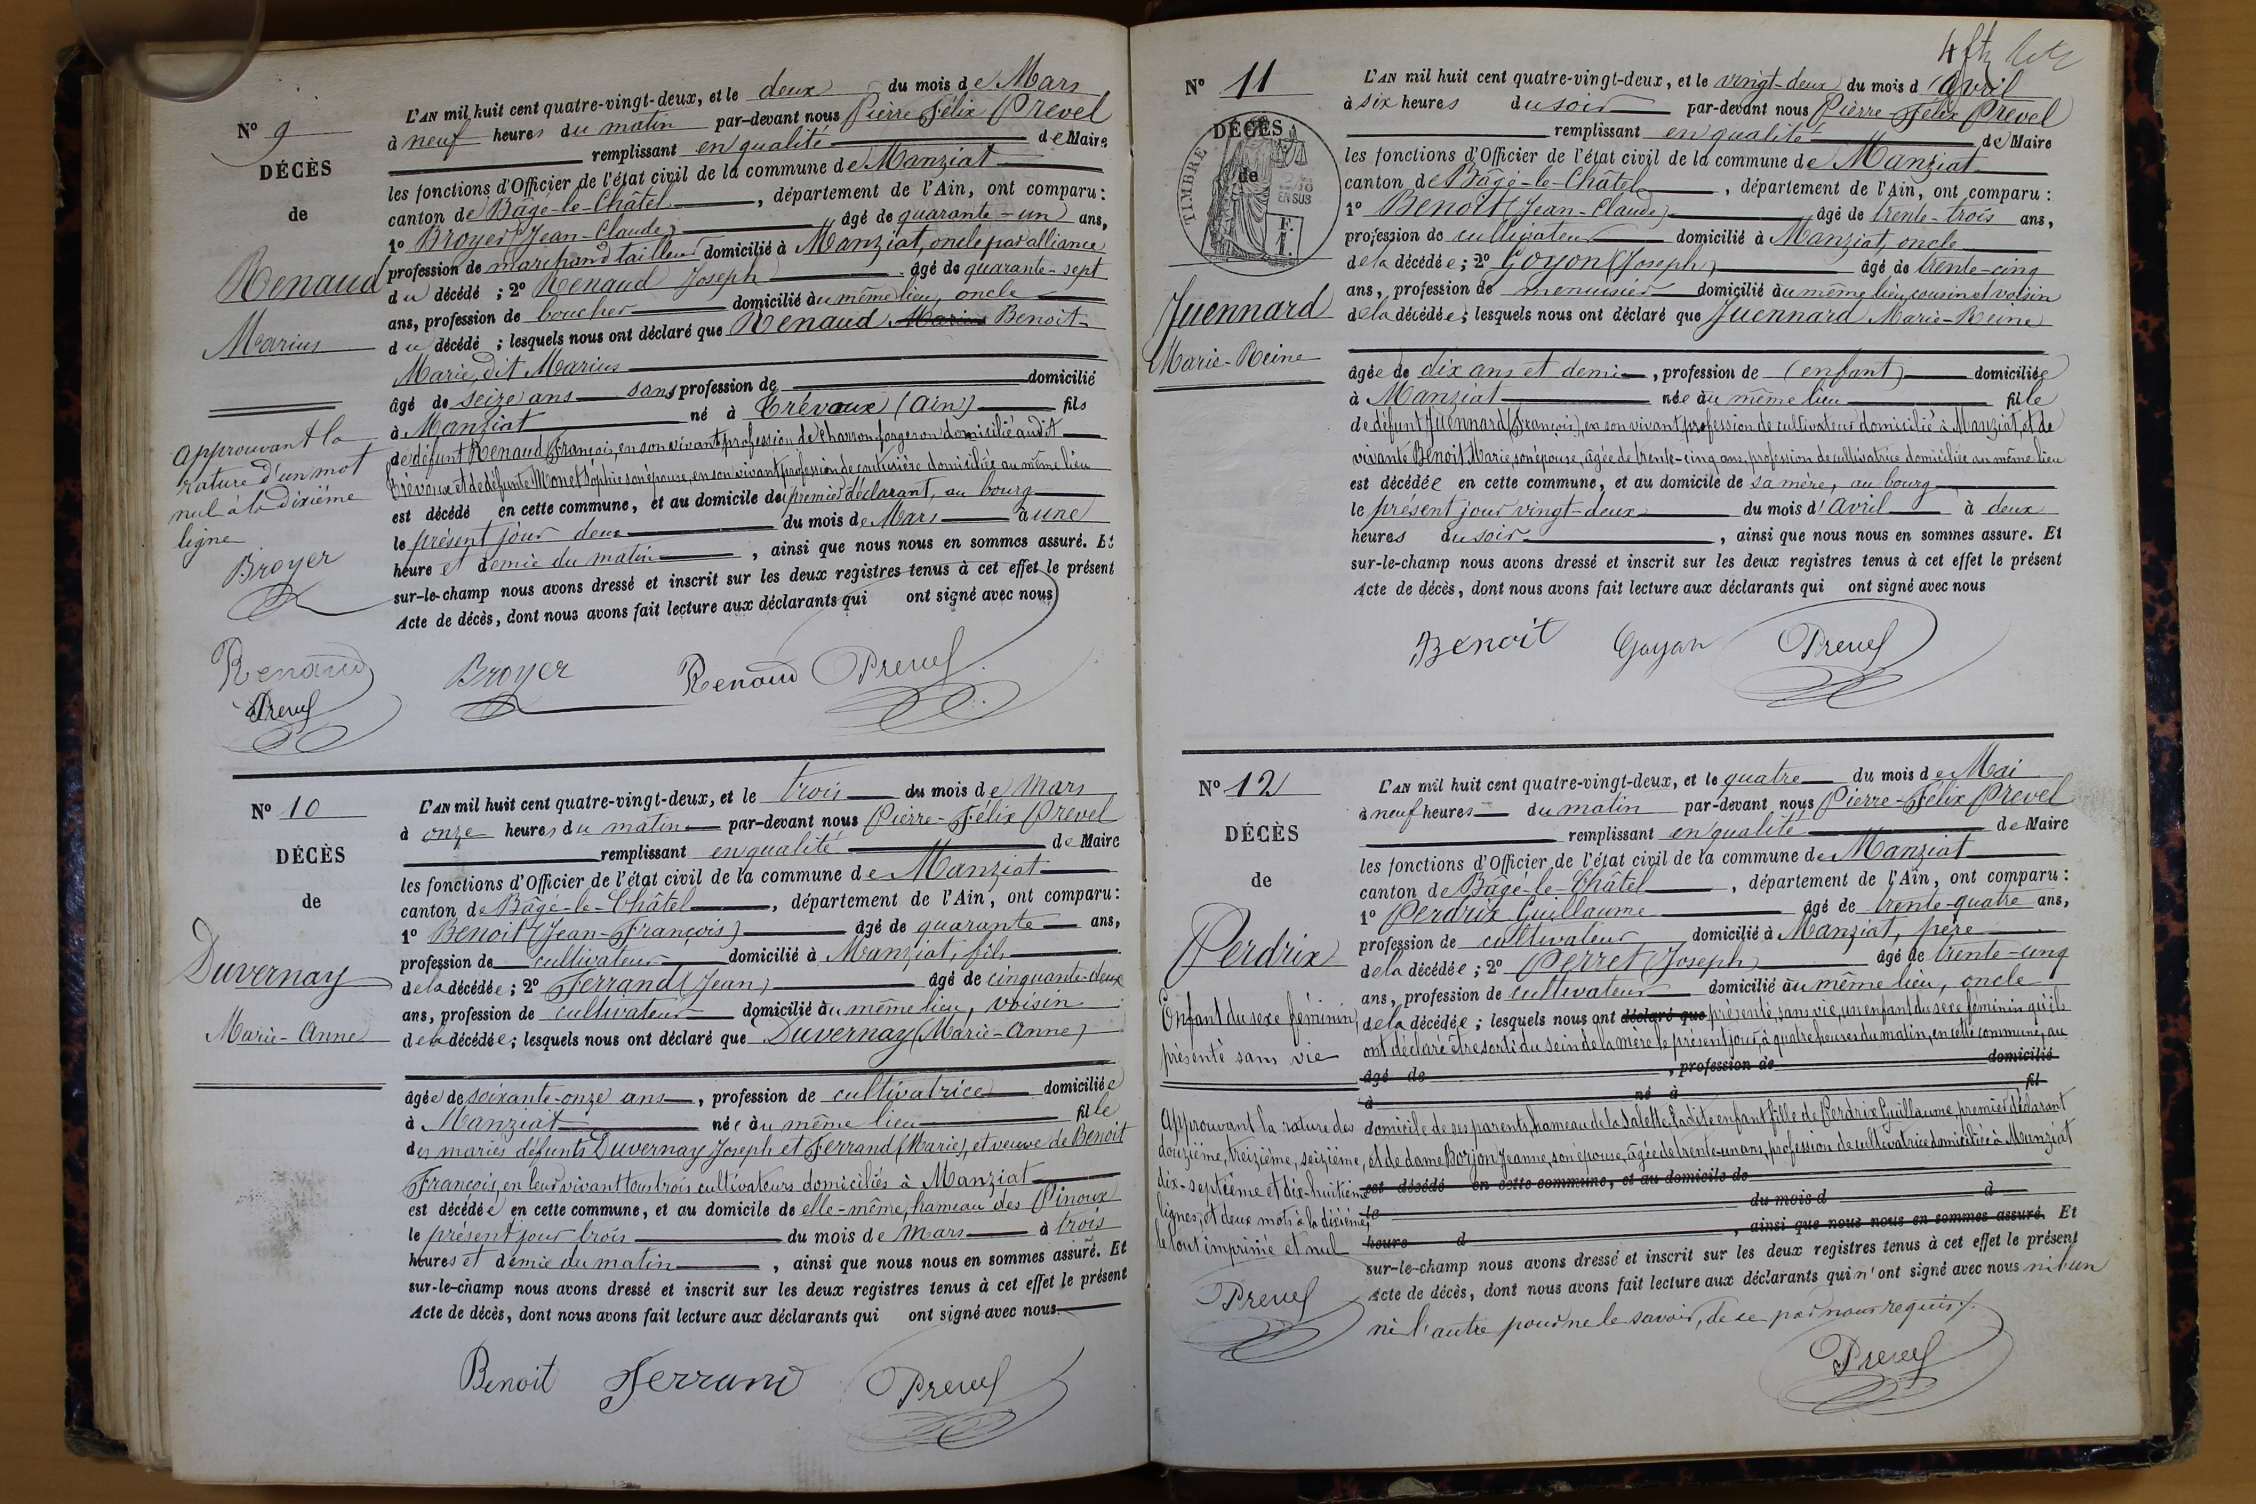 N° 9
DÉCÈS
de
Renaud
Marius
approuvant la
rature d'un mot
nul à la dixième
ligne
Broyer
Renaud
Prevel
L'AN mil huit cent quatre-vingt-deux, et le deux du mois de Mars
à neuf heures du matin par-devant nous Pierre Félix Prevel
remplissant en qualité de Maire
les fonctions d'Officier de l'état civil de la commune de Manziat
canton de Bâgé-le-Châtel, département de l'Ain, ont comparu :
1° Broyer (Jean-Claude) âgé de quarante-un ans,
profession de marchand tailleur domicilié à Manziat, oncle par alliance
du décédé ; 2° Renaud Joseph âgé de quarante-sept
ans, profession de boucher domicilié au même lieu, oncle
du décédé ; lesquels nous ont déclaré que Renaud Marius Benoit-
Marie, dit Marius
âgé de seize ans sans profession de domicilié
à Manziat né à Trévoux (Ain) fils
de défunt Renaud François, en son vivant profession de charron forgeron domicilié audit
Trévoux et de défunte Monet Sophie son épouse, en son vivant profession de couturière domiciliée au même lieu
est décédé en cette commune, et au domicile du premier déclarant, au bourg
le présent jour deux du mois de Mars à une
heure et demie du matin, ainsi que nous nous en sommes assuré. Et
sur-le-champ nous avons dressé et inscrit sur les deux registres tenus à cet effet le présent
Acte de décès, dont nous avons fait lecture aux déclarants qui ont signé avec nous
Broyer Renaud Prevel
N° 10
DÉCÈS
de
Duvernay
Marie-Anne
L'AN mil huit cent quatre-vingt-deux, et le trois du mois de Mars
à onze heures du matin par-devant nous Pierre-Félix Prevel
remplissant en qualité de Maire
les fonctions d'Officier de l'état civil de la commune de Manziat
canton de Bâgé-le-Châtel, département de l'Ain, ont comparu :
1° Benoit (Jean-François) âgé de quarante ans,
profession de cultivateur domicilié à Manziat, fils
de la décédée ; 2° Ferrand (Jean) âgé de cinquante-deux
ans, profession de cultivateur domicilié au même lieu, voisin
de la décédée ; lesquels nous ont déclaré que Duvernay (Marie-Anne)
âgée de soixante-onze ans, profession de cultivatrice domiciliée
à Manziat née au même lieu fille
des mariés défunts Duvernay Joseph et Ferrand (Marie), et veuve de Benoit
François, en leur vivant tous trois cultivateurs domiciliés à Manziat
est décédée en cette commune, et au domicile de elle-même, hameau des Pinoux
le présent jour trois du mois de Mars à trois
heures et demie du matin, ainsi que nous nous en sommes assuré. Et
sur-le-champ nous avons dressé et inscrit sur les deux registres tenus à cet effet le présent
Acte de décès, dont nous avons fait lecture aux déclarants qui ont signé avec nous
Benoit Ferrand Prevel
N° 11
DÉCÈS
de
TIMBRE
EN SUS
F.
1.
Juennard
Marie-Reine
L'AN mil huit cent quatre-vingt-deux, et le vingt-deux du mois d'avril
à six heures du soir par-devant nous Pierre-Félix Prevel
remplissant en qualité de Maire
les fonctions d'Officier de l'état civil de la commune de Manziat
canton de Bâgé-le-Châtel, département de l'Ain, ont comparu :
1° Benoit (Jean-Claude) âgé de trente-trois ans,
profession de cultivateur domicilié à Manziat, oncle
de la décédée ; 2° Goyon (Joseph) âgé de trente-cinq
ans, profession de menuisier domicilié au même lieu, cousin et voisin
de la décédée ; lesquels nous ont déclaré que Juennard Marie-Reine
âgée de dix ans et demi, profession de (enfant) domiciliée
à Manziat née au même lieu fille
de défunt Juennard (François), en son vivant profession de cultivateur domicilié à Manziat, et de
vivante Benoit Marie, son épouse, âgée de trente-cinq ans, profession de cultivatrice domiciliée au même lieu
est décédée en cette commune, et au domicile de sa mère, au bourg
le présent jour vingt-deux du mois d'Avril à deux
heures du soir, ainsi que nous nous en sommes assuré. Et
sur-le-champ nous avons dressé et inscrit sur les deux registres tenus à cet effet le présent
Acte de décès, dont nous avons fait lecture aux déclarants qui ont signé avec nous
Benoit Goyon Prevel
N° 12
DÉCÈS
de
Perdrix
Enfant du sexe féminin,
présenté sans vie
Approuvant la rature des
douzième, treizième, seizième,
dix-septième et dix-huitième
lignes, et deux mots à la dixième,
le tout imprimé et nul
Prevel
L'AN mil huit cent quatre-vingt-deux, et le quatre du mois de Mai
à neuf heures du matin par-devant nous Pierre-Félix Prevel
remplissant en qualité de Maire
les fonctions d'Officier de l'état civil de la commune de Manziat
canton de Bâgé-le-Châtel, département de l'Ain, ont comparu :
1° Perdrix Guillaume âgé de trente-quatre ans,
profession de cultivateur domicilié à Manziat, père
de la décédée ; 2° Perret (Joseph) âgé de trente-cinq
ans, profession de cultivateur domicilié au même lieu, oncle
de la décédée ; lesquels nous ont déclaré que présenté, sans vie, un enfant du sexe féminin qu'ils
ont déclaré être sorti du sein de la mère le présent jour, à quatre heures du matin, en cette commune, au
âgé de, profession de domicilié
à né à fil
domicile de ses parents, hameau de la Salette. Ladite enfant fille de Perdrix Guillaume, premier déclarant
et de dame Borjon Jeanne, son épouse, âgée de trente-un ans, profession de cultivatrice domiciliée à Manziat
est décédé en cette commune, et au domicile de
le du mois d à
heure d, ainsi que nous nous en sommes assuré. Et
sur-le-champ nous avons dressé et inscrit sur les deux registres tenus à cet effet le présent
Acte de décès, dont nous avons fait lecture aux déclarants qui n'ont signé avec nous ni l'un
ni l'autre pour ne le savoir, de ce par nous requis.
Prevel